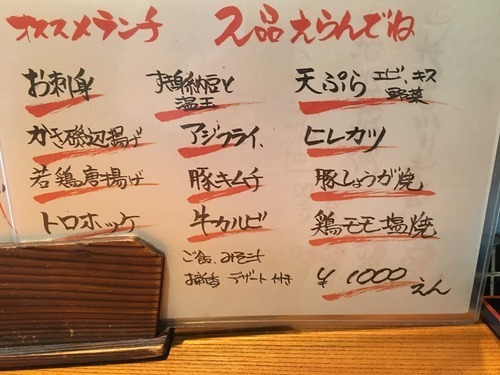 オススメランチ 2品えらんでね
お刺身
納豆と
温玉
天ぷら エビ、キス
野菜
かき磯辺揚げ
アジフライ、
ヒレカツ
若鶏唐揚げ
豚キムチ
豚しょうが焼
トロホッケ
牛カルビ
鶏モモ塩焼
ご飯、みそ汁
お新香 デザート付き
¥1000えん